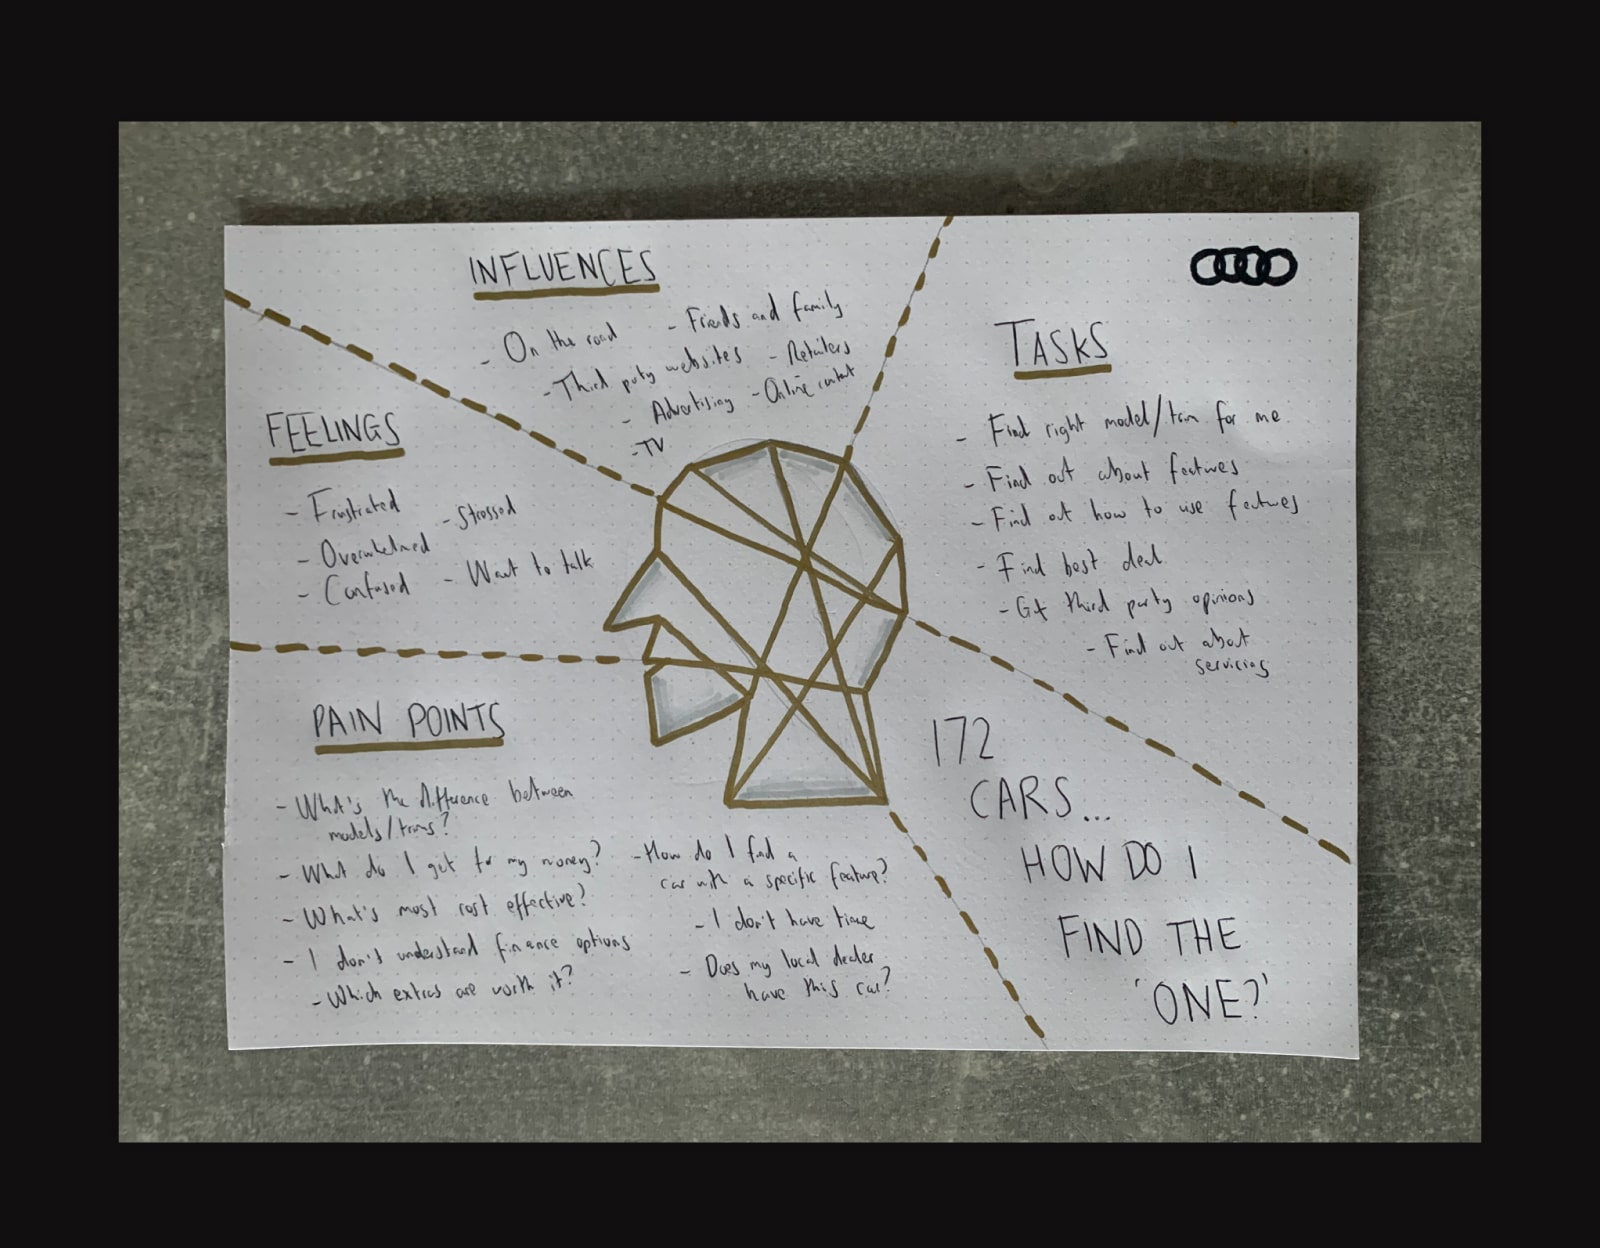 INFLUENCES
- On the road
- Friends and family
- Third party websites
- Retailers
- Advertising
- Online content
- TV
TASKS
- Find right model/trim for me
- Find out about features
- Find out how to use features
- Find best deal
- Get third party opinions
- Find out about
servicing
FEELINGS
- Frustrated
- Stressed
- Overwhelmed
- Confused
- Want to talk
PAIN POINTS
- What's the difference between
models/trims?
- What do I get for my money?
- What's most cost effective?
- I don't understand finance options
- Which extras are worth it?
- How do I find a
car with a specific feature?
- I don't have time
- Does my local dealer
have this car?
172
CARS...
HOW DO I
FIND THE
'ONE?'